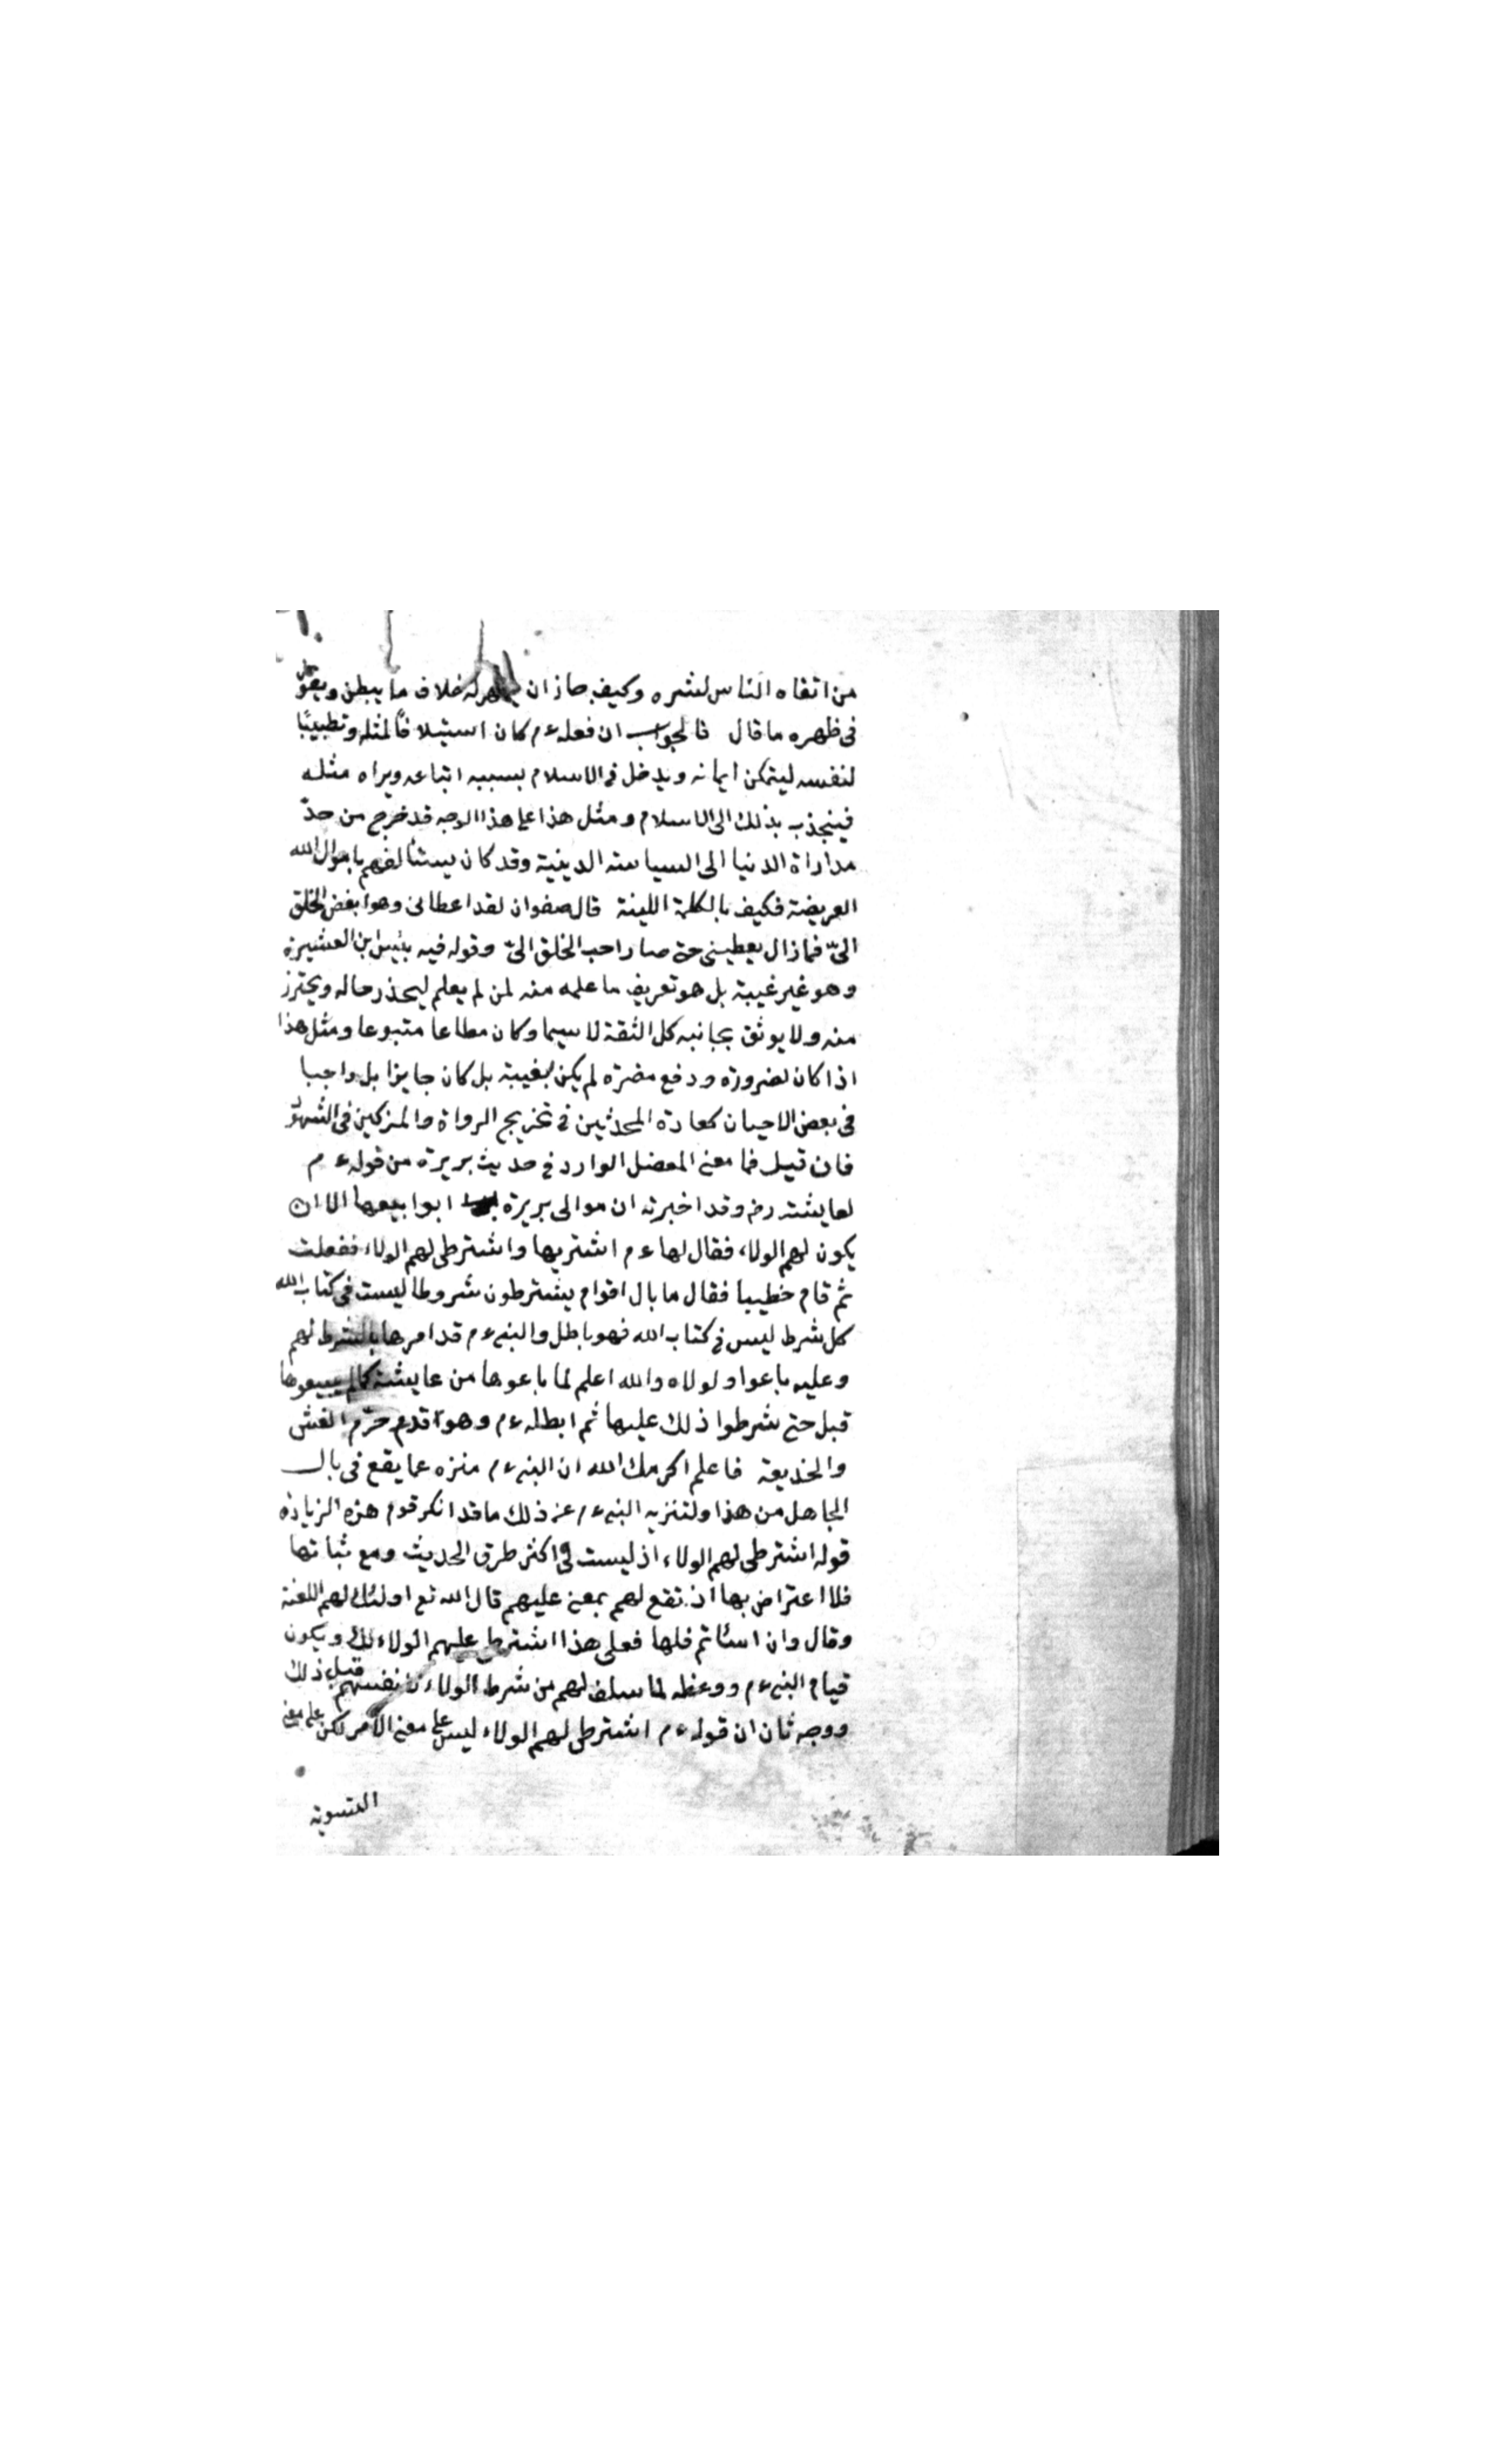 من اتقاه الناس لشره وكيف جاز ان يظهر له خلاف ما يبطن ويقول
فى ظهره ما قال فالجواب ان فعله ءم كان استيلافا لمثله وتطييبا
لنفسه ليتمكن ايمانه ويدخل فى الاسلام بسببه اتباعه ويراه مثله
فينجذب بذلك الى الاسلام ومثل هذا على هذا الوجه قد خرج من حدّ
مداراة الدنيا الى السياسة الدينية وقد كان يستألفهم باموال الله
العريضة فكيف بالكلمة اللينة قال صفوان لقد اعطانى وهو ابغض الخلق
الىّ فما زال يعطينى حتى صار احب الخلق الىّ وقوله فيه بئيس ابن العشيرة
وهو غير غيبة بل هو تعريف ما علمه منه لمن لم يعلم ليحذر حاله ويحترز
منه ولا يوثق بجانبه كل الثقة لا سيما وكان مطاعا متبوعا ومثل هذا
اذا كان لضرورة ودفع مضرة لم يكن بغيبة بل كان جايزا بل واجبا
فى بعض الاحيان كعادة المحدثين فى تخريج الرواة والمزكين فى الشهود
فان قيل فما معنى المعضل الوارد فى حديث بريرة من قوله ءم
لعايشة رض وقد اخبرته ان موالى بريرة ابوا بيعها الا ان
يكون لهم الولاء فقال لها ءم اشتريها واشترطى لهم الولاء ففعلت
ثم قام خطيبا فقال ما بال اقوام يشترطون شروطا ليست فى كتاب الله
كل شرط ليس فى كتاب الله فهو باطل والنبى ءم قد امرها بالشرط لهم
وعليه باعوا ولولاه والله اعلم لما باعوها من عايشة كما لم يبيعوها
قبل حتى شرطوا ذلك عليها ثم ابطله ءم وهو قد حرّم الغش
والخديعة فاعلم اكرمك الله ان النبى ءم منزه عما يقع فى بال
الجاهل من هذا ولتنزيه النبى ءم عن ذلك ما قد انكر قوم هذه الزيادة
قوله اشترطى لهم الولاء اذ ليست فى اكثر طرق الحديث ومع ثباتها
فلا اعتراض بها اذ تقع لهم بمعنى عليهم قال الله تع اولئك لهم اللعنة
وقال وان اسأتم فلها فعلى هذا اشترطى عليهم الولاء لك ويكون
قيام النبى ءم ووعظه لما سلف لهم من شرط الولاء لانفسهم قبل ذلك
ووجه ثان ان قوله ءم اشترطى لهم الولاء ليس على معنى الامر لكن على معنى
التسوية